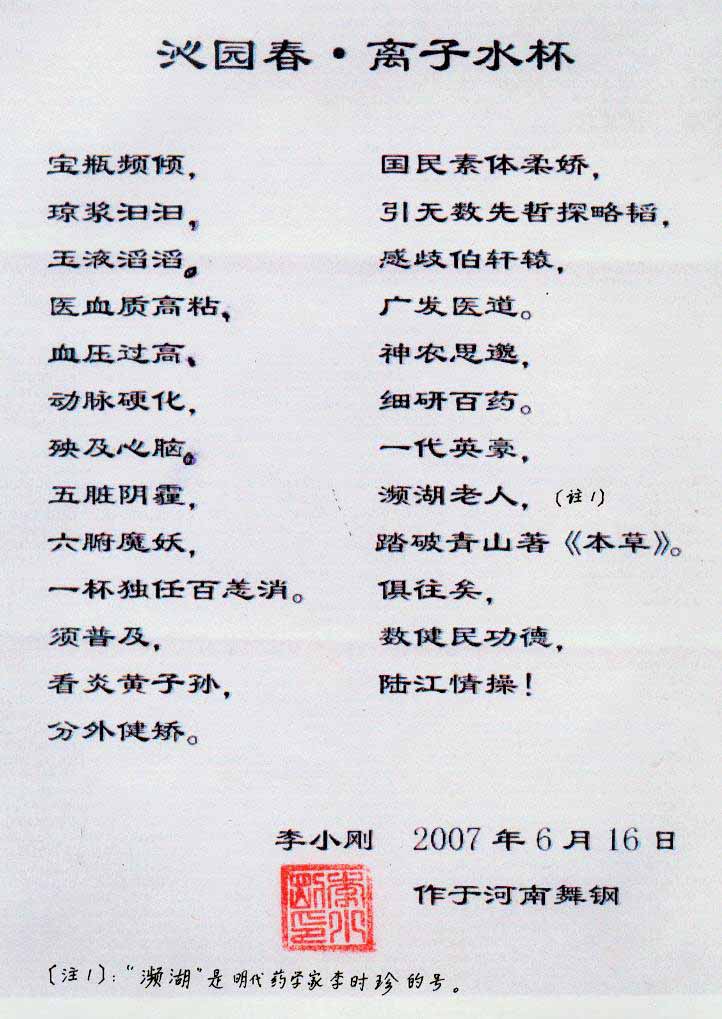 沁园春·离子水杯
宝瓶频倾,
琼浆汩汩,
玉液滔滔。
医血质高粘、
血压过高、
动脉硬化,
殃及心脑。
五脏阴霾,
六腑魔妖,
一杯独任百恙消。
须普及,
看炎黄子孙,
分外健矫。
国民素体柔娇,
引无数先哲探略韬,
感歧伯轩辕,
广发医道。
神农思邈,
细研百药。
一代英豪,
濒湖老人,(注1)
踏破青山著《本草》。
俱往矣,
数健民功德,
陆江情操!
李小刚 2007年6月16日
作于河南舞钢
(注1):“濒湖”是明代药学家李时珍的号。